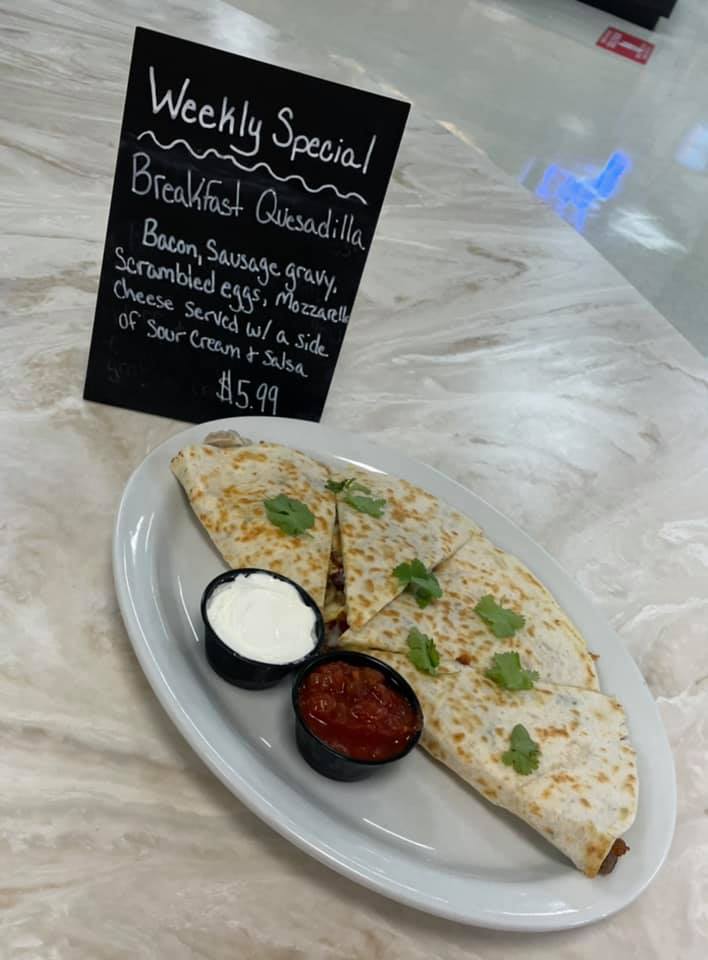 Weekly Special
Breakfast Quesadilla
Bacon, Sausage gravy,
Scrambled eggs, Mozzarella
cheese served w/ a side
of Sour Cream + Salsa
$5.99